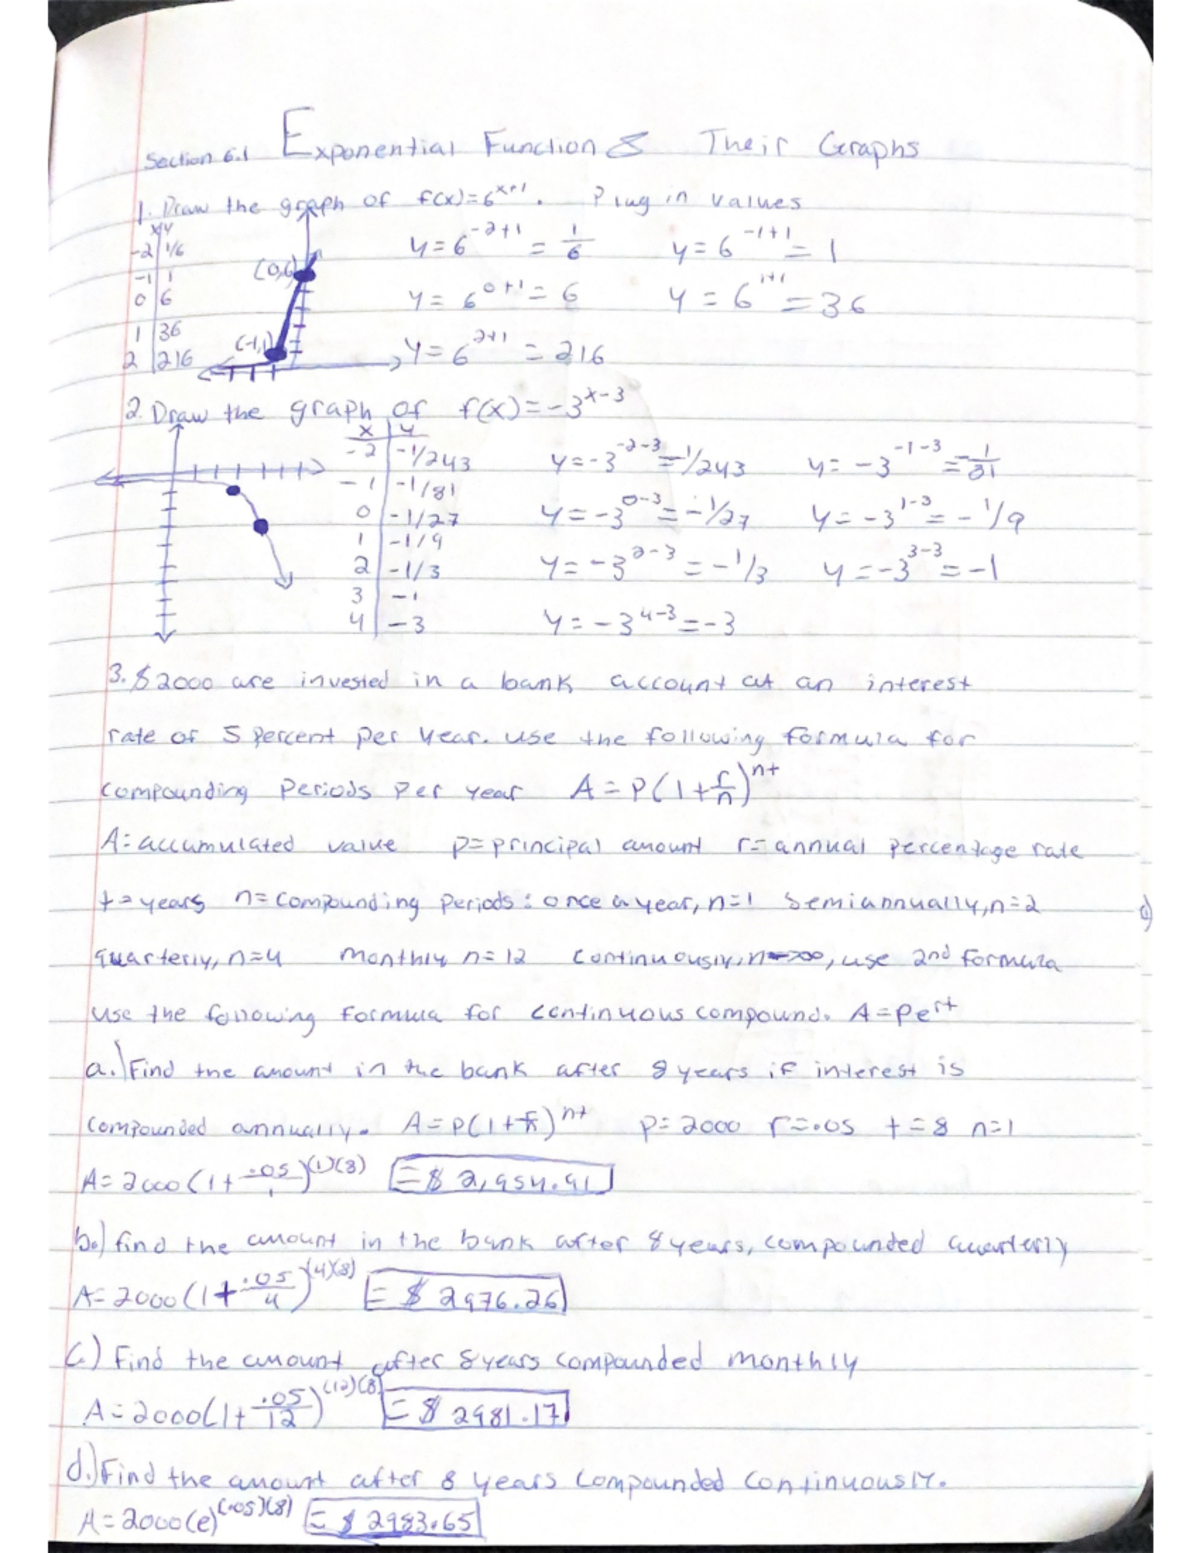 Section 6.1 Exponential Functions Their Graphs
1. Draw the graph of f(x)=6^x+1. Plug in values
x y
-2 1/6
-1 1
0 6
1 36
2 216
(0,6)
(-1,1)
y=6^-2+1 = 1/6 y=6^-1+1 = 1
y=6^0+1 = 6 y=6^1+1 = 36
y=6^2+1 = 216
2. Draw the graph of f(x)=-3^x-3
x y
-2 -1/243
-1 -1/81
0 -1/27
1 -1/9
2 -1/3
3 -1
4 -3
y=-3^-2-3 = -1/243 y=-3^-1-3 = -1/81
y=-3^0-3 = -1/27 y=-3^1-3 = -1/9
y=-3^2-3 = -1/3 y=-3^3-3 = -1
y=-3^4-3 = -3
3. $2000 are invested in a bank account at an interest
rate of 5 percent per year. use the following formula for
compounding periods per year A=P(1+r/n)^nt
A=accumulated value p=principal amount r=annual percentage rate
t=years n=compounding periods: once a year, n=1 semiannually, n=2
quarterly, n=4 monthly n=12 continuously, n→∞, use 2nd formula
use the following formula for continuous compound. A=Pe^rt
a.) Find the amount in the bank after 8 years if interest is
compounded annually. A=P(1+r/n)^nt p=2000 r=.05 t=8 n=1
A=2000(1+.05/1)^(1)(8) =$2,954.91
b.) find the amount in the bank after 8 years, compounded quarterly
A=2000(1+.05/4)^(4)(8) =$2976.26
c.) Find the amount after 8 years compounded monthly
A=2000(1+.05/12)^(12)(8) =$2981.17
d.) Find the amount after 8 years compounded continuously.
A=2000(e)^(.05)(8) =$2983.65